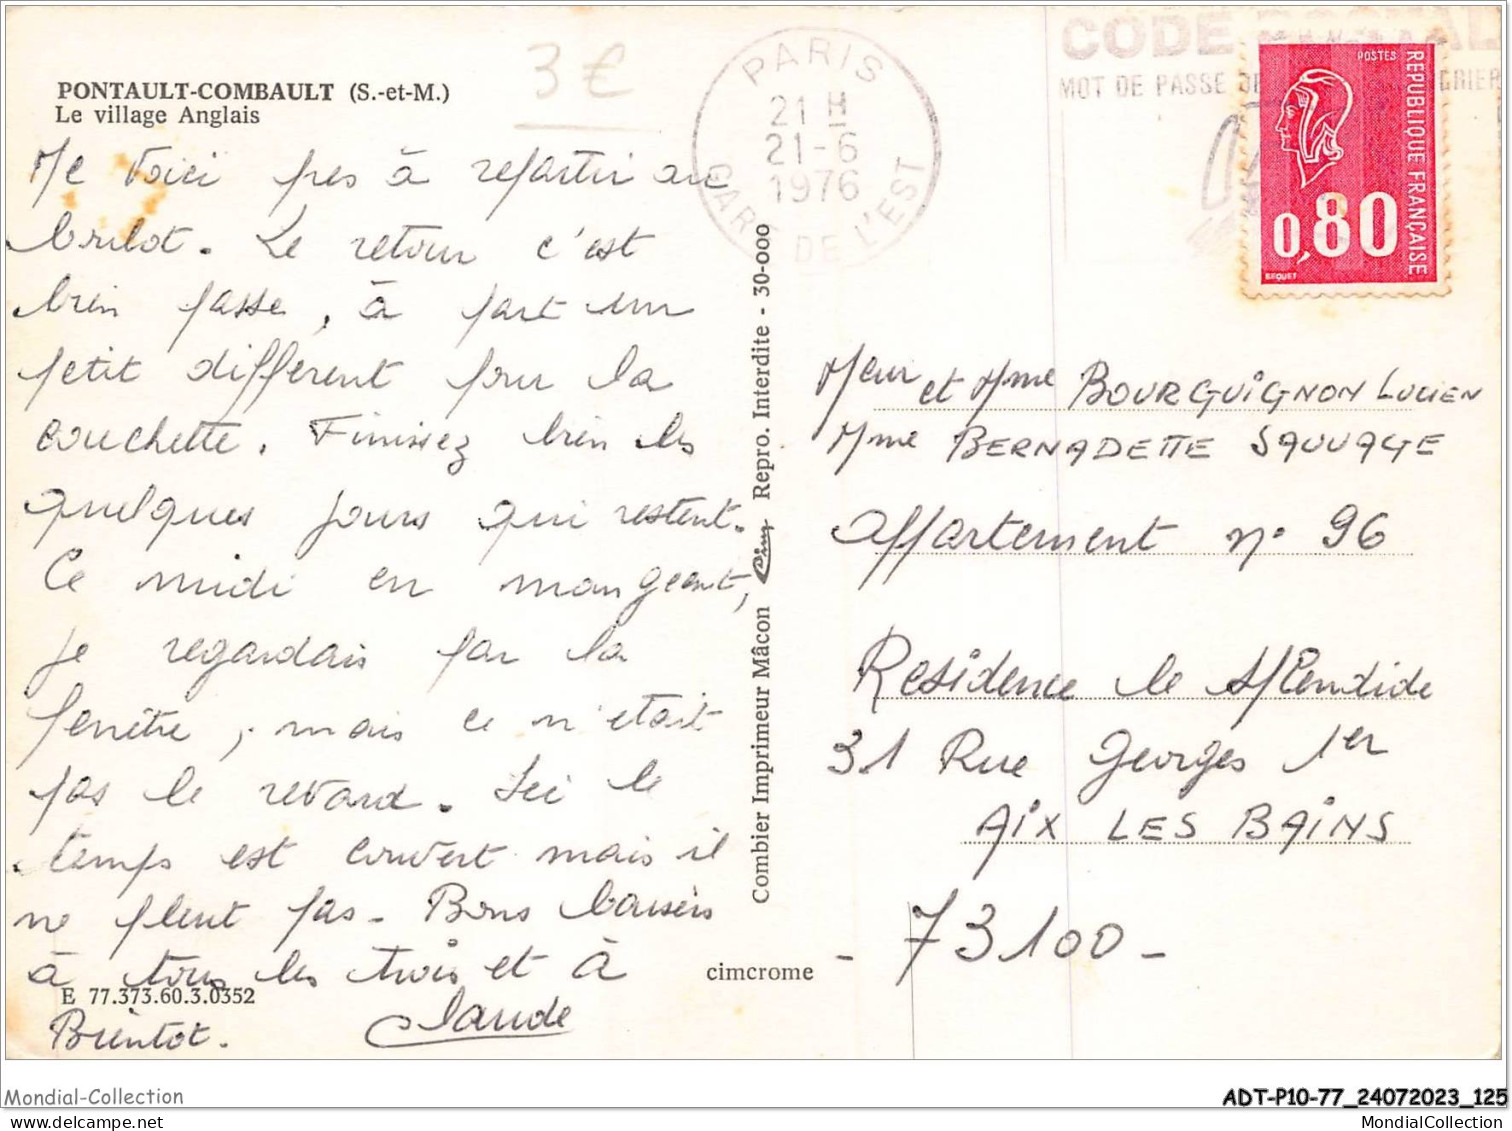 PONTAULT-COMBAULT (S.-et-M.)
Le village Anglais
3 €
Me voici pres à repartir au
boulot. Le retour c'est
bien passe, à part un
petit différent pour la
couchette. Finissez bien les
quelques jours qui restent.
Ce midi en mangeant,
je regardais par la
fenêtre, mais ce n'était
pas le revard. Ici le
temps est couvert mais il
ne pleut pas - Bons baisers
à tous les trois et à
Bientot.
Claude
E 77.373.60.3.0352
cimcrome
Combier Imprimeur Mâcon Cim Repro. Interdite - 30-000
PARIS
21 H
21-6
1976
GARE DE L'EST
CODE POSTAL
MOT DE PASSE
POSTES
REPUBLIQUE FRANÇAISE
0,80
BEQUET
Meur et Mme BOURGUIGNON LUCIEN
Mme BERNADETTE SAUVAGE
Appartement n° 96
Residence le Splendide
31 Rue Georges 1er
AIX LES BAINS
- 73100 -
Mondial-Collection
delcampe.net
ADT-P10-77_24072023_125
MondialCollection